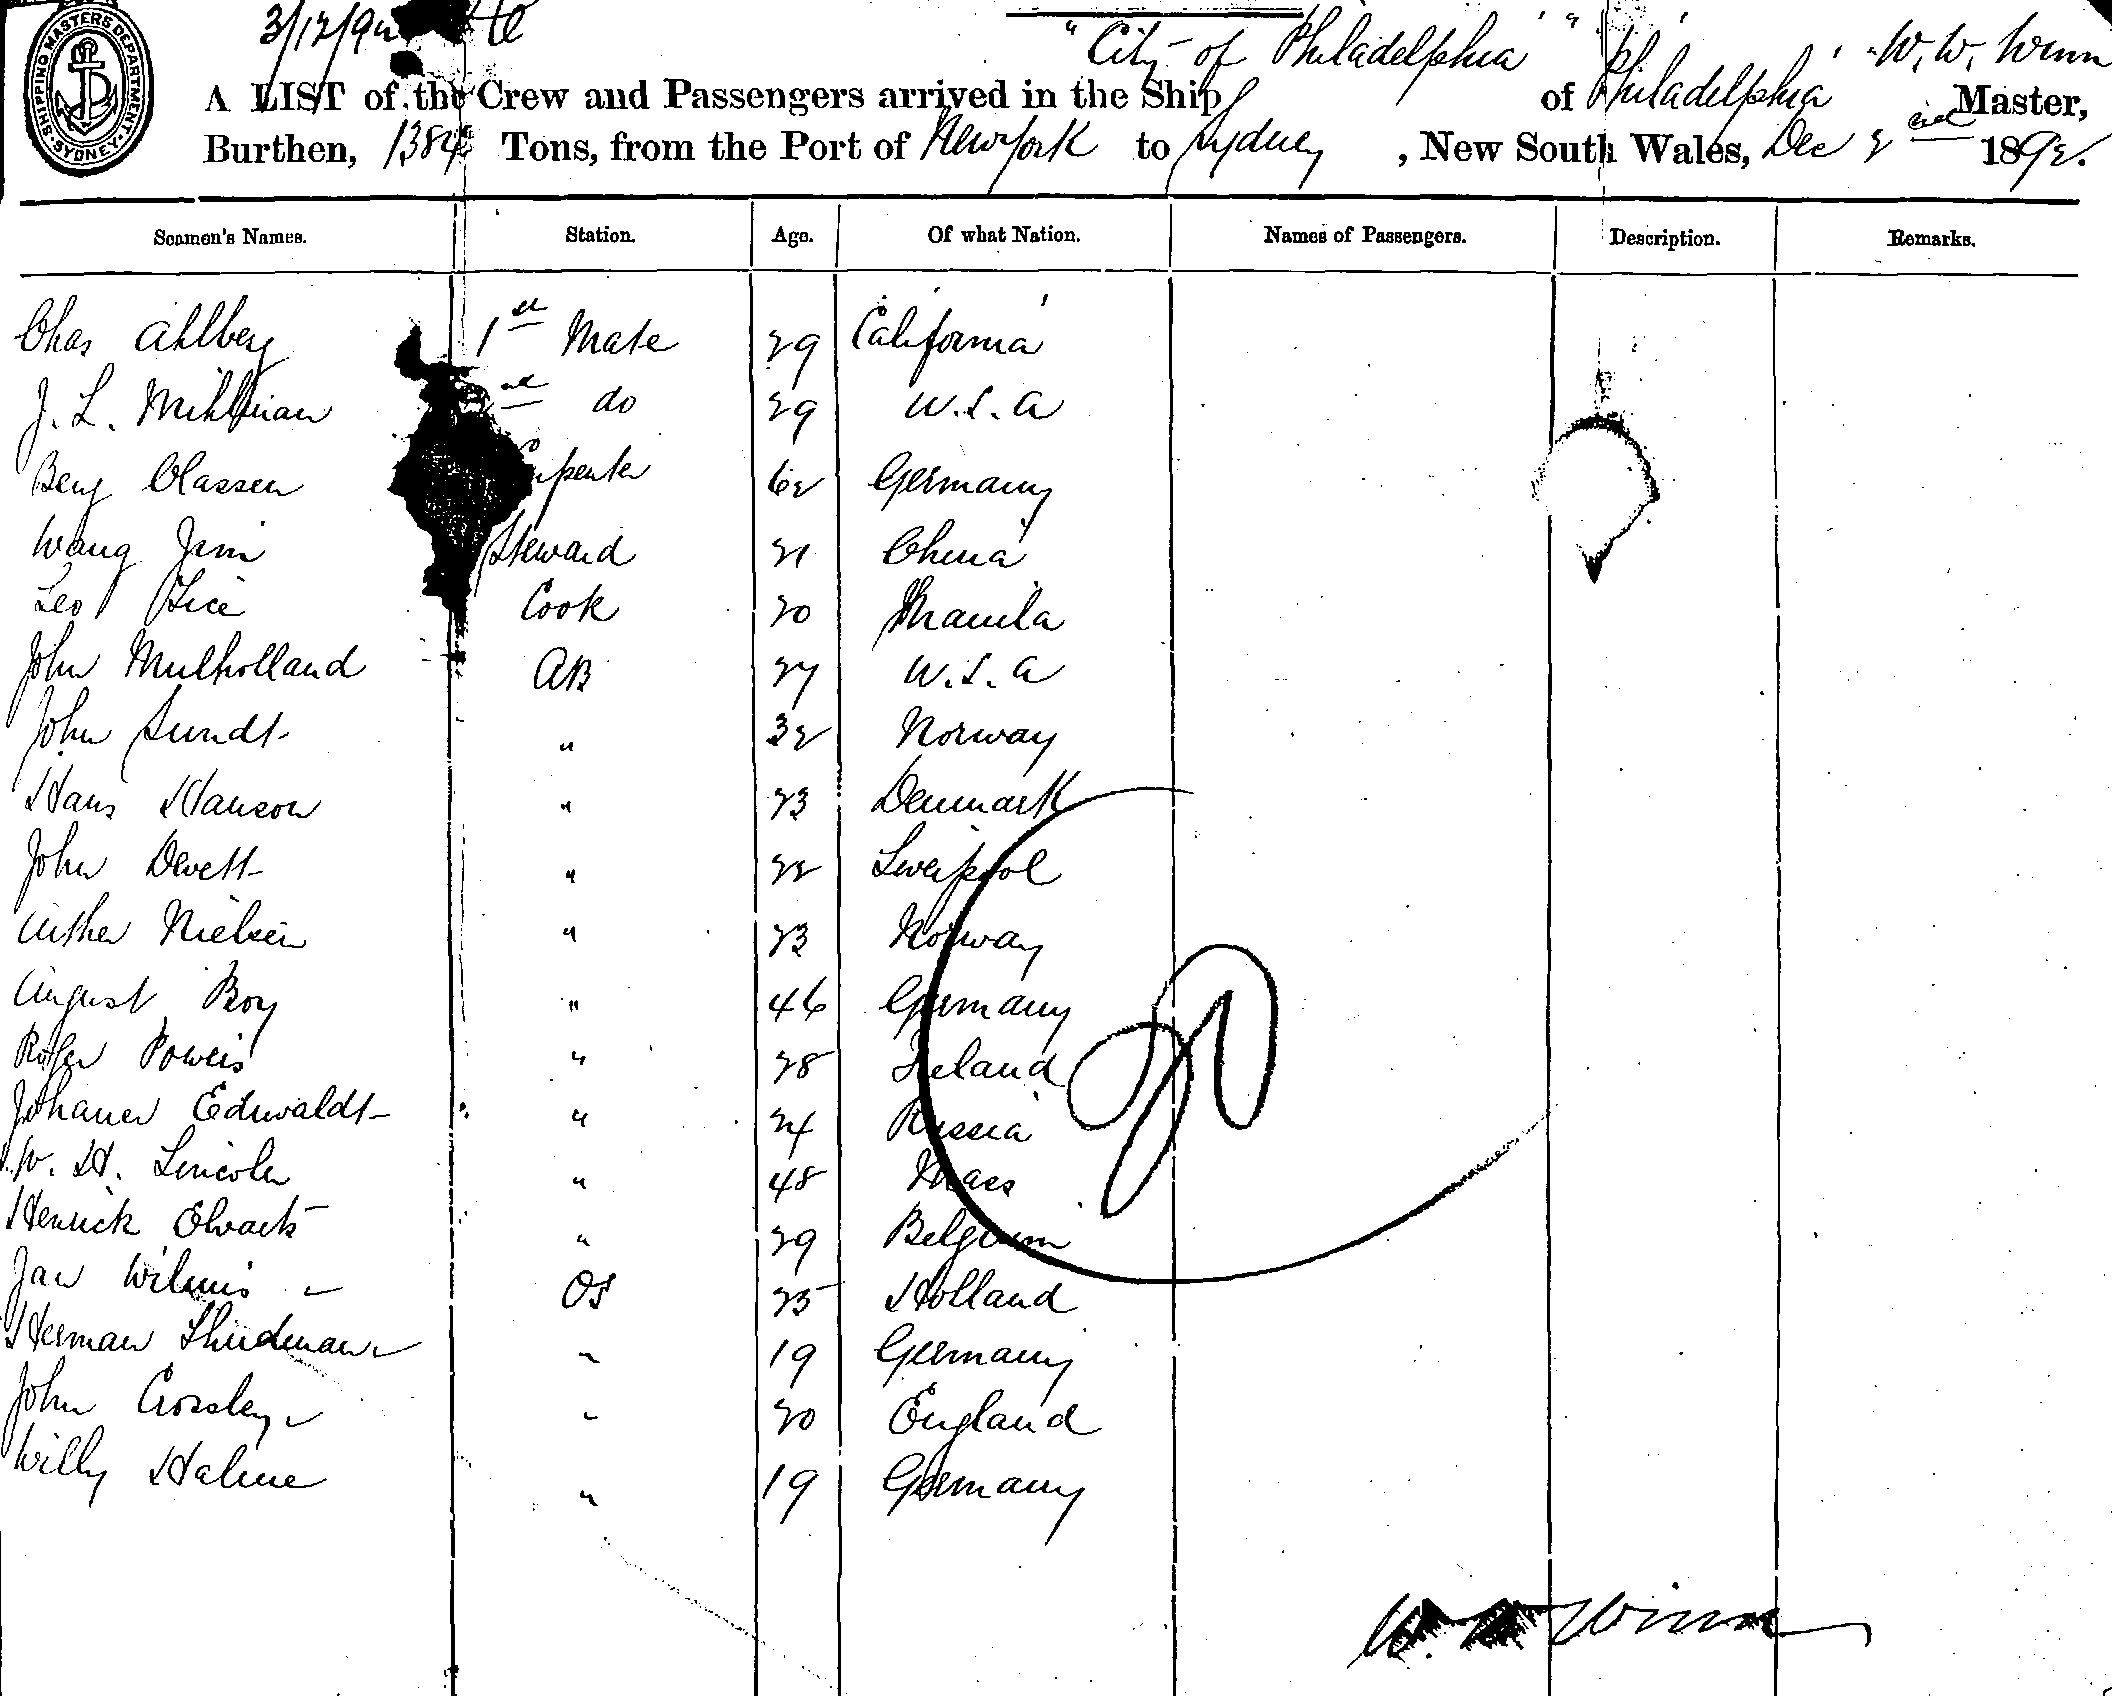 SHIPPING MASTERS DEPARTMENT · SYDNEY ·
3/12/92
"City of Philadelphia" "Philadelphia" W. W. Winn
A LIST of the Crew and Passengers arrived in the Ship of Master,
Burthen, 1384 Tons, from the Port of Newyork to Sydney, New South Wales, Dec 2nd 1892.
Seamen's Names. Station. Age. Of what Nation. Names of Passengers. Description. Remarks.
Chas Ahlberg 1st Mate 29 California
J. L. Millman 2nd do 29 U.S.A
Beng Classen Carpenter 62 Germany
Wang Jim Steward 21 China
Leo Lice Cook 20 Manila
John Mulholland AB 27 U.S.A
John Sundt " 32 Norway
Hans Hanson " 23 Denmark
John Devett " 22 Liverpool
Arther Nielsen " 23 Norway
August Boy " 46 Germany
Roger Powers " 28 Ireland
Johannes Eduwaldt " 24 Russia
W. H. Lincoln " 48 Mass
Henrick Elvarts " 29 Belgium
Jan Wilms OS 25 Holland
Herman 19 Germany
John Crossley " 20 England
Willy Halme " 19 Germany
W. W. Winn